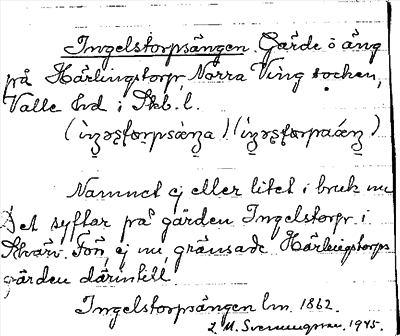 Ingelstorpsängen. Gärde o äng
på Härlingstorp, Norra Ving socken,
Valle hd i Skb. l.
Namnet ej eller litet i bruk nu
Det syftar på gården Ingelstorp i
Skärv. Fön, ej nu, gränsade Härlingstorps
gården därintill
Ingelstorpsängen lm. 1862.
Z. M. Svenningson. 1945.